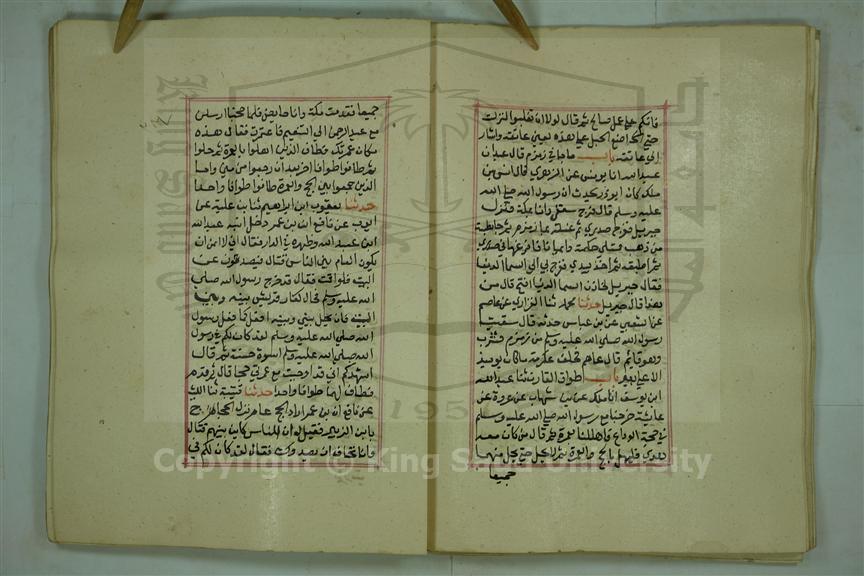 فانكم على عمل صالح ثم قال لولا ان تغلبوا لنزلت
حتى اضع الحبل على هذه يعني عاتقه واشار
الى عاتقه باب ماجاء في زمزم وقال عبدان
عبد الله انا يونس عن الزهري قال انس بن
ملك كان ابو ذر يحدث ان رسول الله صلى الله
عليه وسلم قال فرج سقفي وانا بمكة فنزل
جبريل ففرج صدري ثم غسله بما زمزم ثم جا بطست
من ذهب ممتلي حكمة وايمانا فافرغها في صدري
ثم اطبقه ثم اخذ بيدي فعرج بي الى السما الدنيا
فقال جبريل لخازن السما الدنيا افتح قال من
هذا قال جبريل حدثنا محمد ثنا الفزاري عن عاصم
عن الشعبي عن بن عباس حدثه قال سقيت
رسول الله صلى الله عليه وسلم من زمزم فشرب
وهو قايم قال عاصم فحلف عكرمة ما كان يوميذ
الا على بعير باب طواف القارن ثنا عبد الله
ابن يوسف انا ملك عن بن شهاب عن عروة عن
عايشة خرجنا مع رسول الله صلى الله عليه وسلم
في حجة الوداع فاهللنا بعمرة ثم قال من كان معه
هدي فليهل بالحج والعمرة ثم لا يحل حتى يحل منهما
جميعا
جميعا فقدمت مكة وانا حايض فلما قضينا ارسلني
مع عبد الرحمن الى التنعيم فاعتمرت فقال هذه
مكان عمرتك فطاف الذين اهلوا بالعمرة ثم حلوا
ثم طافوا طوافا اخر بعد ان رجعوا من منى واما
الذين جمعوا بين الحج والعمرة طافوا طوافا واحدا
حدثنا يعقوب ابن ابراهيم ثنا بن علية عن
ايوب عن نافع ان بن عمر دخل ابنه عبد الله
ابن عبد الله وظهره في الدار فقال اني لا امن ان
يكون العام بين الناس قتال فيصدوك عن
البيت فلو اقمت فقال قد خرج رسول الله صلى
الله عليه وسلم فحال كفار قريش بينه وبين
البيت فان يحل بيني وبينه افعل كما فعل رسول
الله صلى الله عليه وسلم لقد كان لكم في رسول
الله صلى الله عليه وسلم اسوة حسنة ثم قال
اشهدكم اني قد اوجبت مع عمرتي حجا قال ثم قدم
فطاف لهما طوافا واحدا حدثنا قتيبة ثنا الليث
عن نافع ان بن عمر اراد الحج عام نزل الحجاج
بابن الزبير فقيل له ان الناس كاين بينهم قتال
وانا نخاف ان يصدوك فقال لقد كان لكم في
Copyright © King Saud University
1957